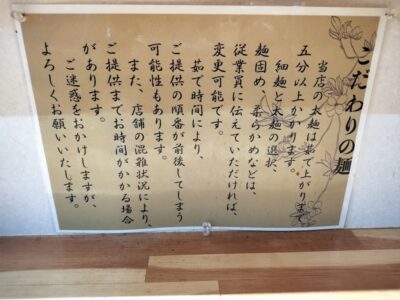 こだわりの麺
当店の太麺は茹で上がりまで
五分以上かかります。
細麺と太麺の選択、
麺固め、柔らかめなどは、
従業員に伝えていただければ、
変更可能です。
茹で時間により、
ご提供の順番が前後してしまう
可能性もあります。
また、店舗の混雑状況により、
ご提供までお時間がかかる場合
があります。
ご迷惑をおかけしますが、
よろしくお願いいたします。